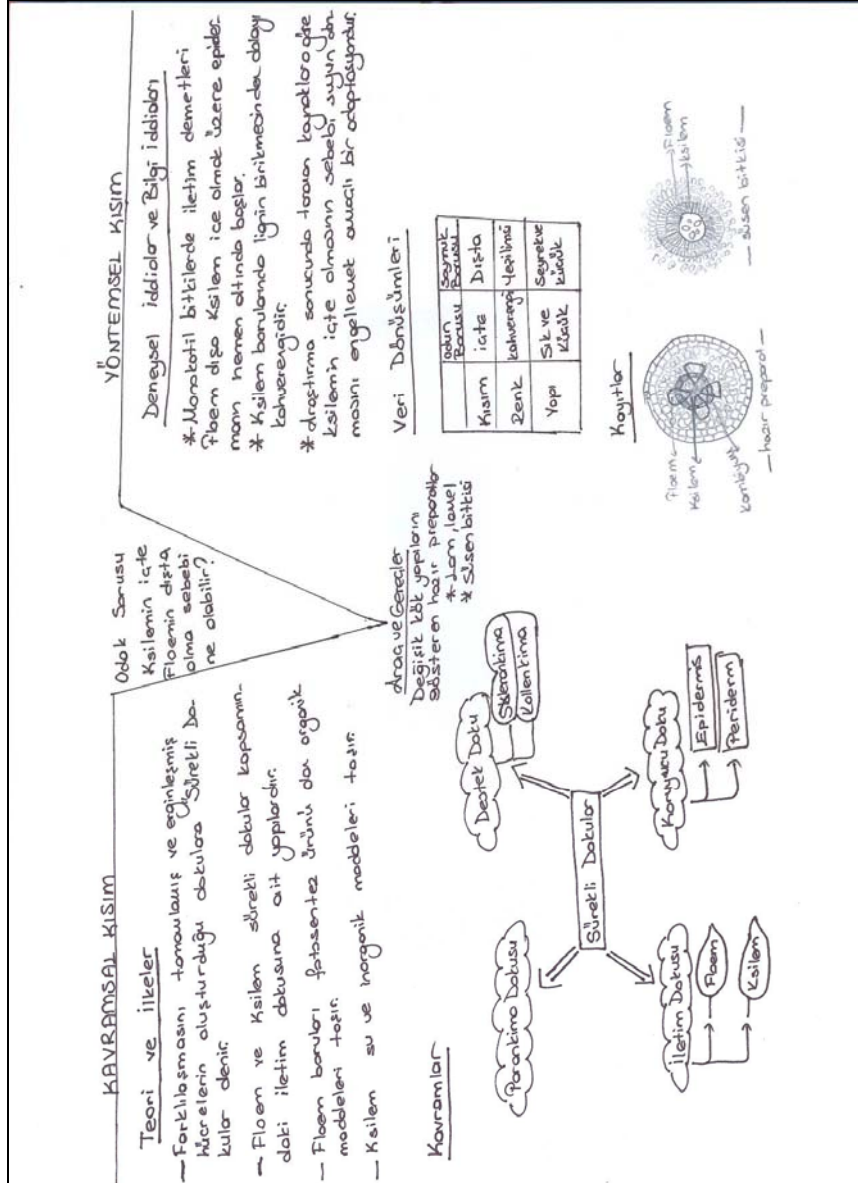 KAVRAMSAL KISIM
Teori ve ilkeler
— Farklılaşmasını tamamlamış ve erginleşmiş
hücrelerin oluşturduğu dokulara Sürekli Do-
kular denir.
— Floem ve Ksilem sürekli dokular kapsamın-
daki iletim dokusuna ait yapılardır.
— Floem boruları fotosentez ürünü olan organik
maddeleri taşır.
— Ksilem su ve inorganik maddeleri taşır.
Kavramlar
Parankima Dokusu
Destek Doku
Sklerankima
Kollenkima
Sürekli Dokular
İletim Dokusu
Floem
Ksilem
Koruyucu Doku
Epidermis
Periderm
Odak Sorusu
Ksilemin içte
Floemin dışta
olma sebebi
ne olabilir?
Araç ve Gereçler
Değişik kök yapılarını
gösteren hazır preparatlar
* Lam, lamel
* Süsen bitkisi
YÖNTEMSEL KISIM
Deneysel iddialar ve Bilgi iddiaları
* Monokotil bitkilerde iletim demetleri
Floem dışa Ksilem içe olmak üzere epider-
manın hemen altında başlar.
* Ksilem borularında lignin birikmesinden dolayı
kahverengidir.
* Araştırma sonucunda taranan kaynaklara göre
ksilemin içte olmasının sebebi suyun don-
masını engellemek amaçlı bir adaptasyondur.
Veri Dönüşümleri
Odun Borusu Soymuk Borusu
Kısım içte Dışta
Renk kahverengi Yeşilimsi
Yapı Sık ve Küçük Seyrek ve küçük
Kayıtlar
Floem
Ksilem
Kambiyum
— hazır preparat —
Floem
Ksilem
— süsen bitkisi —